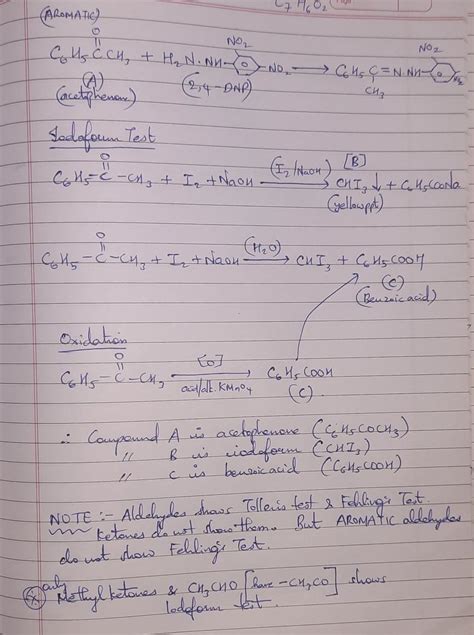 C7H6O2
(AROMATIC)
O NO2 NO2
C6H5CCH3 + H2N.NH- -NO2 → C6H5C=N.NH-
CH3
(A) (2,4-DNP)
(acetophenone)
Iodoform Test
O (I2/NaOH) [B]
C6H5-C-CH3 + I2 + NaOH → CHI3↓ + C6H5COONa
(yellow ppt)
O (H2O)
C6H5-C-CH3 + I2 + NaOH → CHI3 + C6H5COOH
(C)
(Benzoic acid)
Oxidation
O [O]
C6H5-C-CH3 → C6H5COOH
acid/alk. KMnO4 (C).
∴ Compound A is acetophenone (C6H5COCH3)
" B is iodoform (CHI3)
" C is benzoic acid (C6H5COOH)
NOTE :- Aldehydes shows Tollen's test & Fehling's Test.
Ketones do not show them. But AROMATIC aldehydes
do not show Fehling's Test.
only
Methyl ketones & CH3CHO [have -CH3CO] shows
Iodoform test.